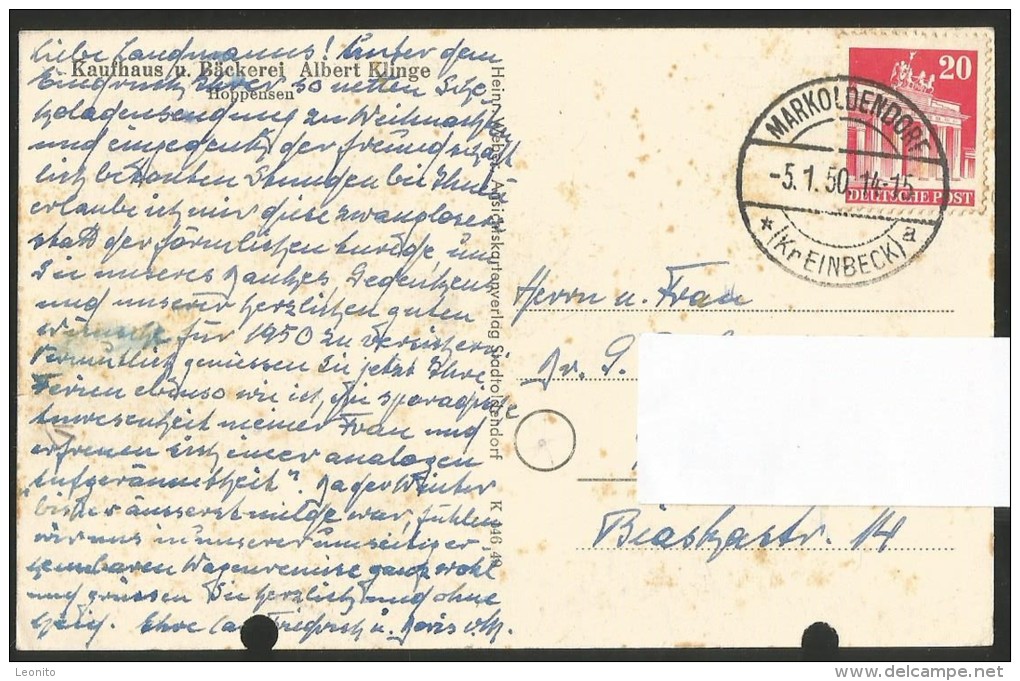 Liebe Landmanns! Unter dem
Kaufhaus u. Bäckerei Albert Klinge
Hoppensen
Eindruck Ihrer so netten Scho-
koladensendung zu Weihnachten
und eingedenk der freundschaft-
lich betonten Stunden bei Ihnen
erlaube ich mir diese zwanglose
statt der förmlichen Anrede, um
Sie unseres Gedenkens
und unserer herzlichen guten
Wünsche für 1950 zu versichern.
Vermutlich geniessen Sie jetzt Ihre
Ferien ebenso wie ich die sporadische
Anwesenheit meiner Frau und
erfreuen sich einer analogen
"Aufgeräumtheit". Da der Winter
bisher äusserst milde war, fühlen
wir uns in unserer umseitig er-
kennbaren Wagenremise ganz wohl
und grüssen Sie herzlich und ohne
Ihre Friedrich u. Doris v. M.
Heinr. Weber, Ansichtskartenverlag Stadtoldendorf K 446 49
20
DEUTSCHE POST
MARKOLDENDORF
-5.1.50.14-15
a
* (Kr EINBECK)
Herrn u. Frau
Dr. G.
14
Leonito